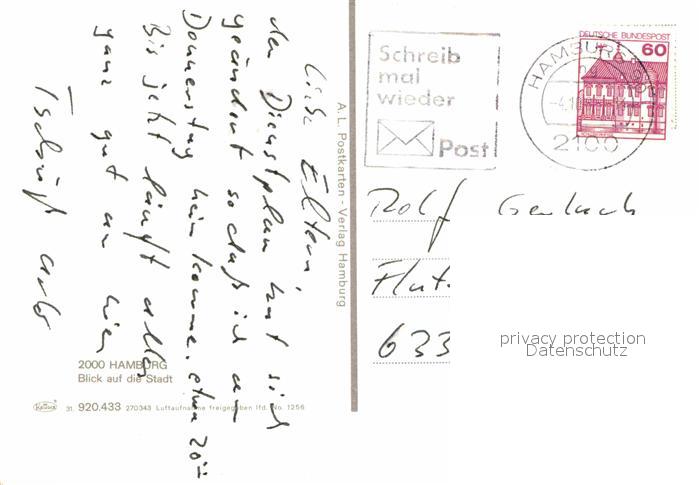 Liebe Eltern,
der Dienstplan hat sich
geändert sodaß ich am
Donnerstag hin komme. etwa 20⁰⁰
Bis jetzt läuft alles
ganz gut an hier
Tschüß
2000 HAMBURG
Blick auf die Stadt
Krüger
31. 920.433 270343 Luftaufnahme freigegeben lfd. No. 1256
A.L. Postkarten - Verlag Hamburg
Schreib
mal
wieder
Post
HAMBURG
2100
DEUTSCHE BUNDESPOST
60
Rolf Gerlach
633
privacy protection
Datenschutz